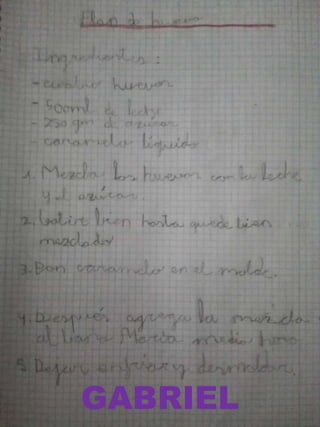 Flan de huevo
Ingredientes:
- cuatro huevos
- 500ml de leche
- 250 gm de azúcar
- caramelo líquido
1. Mezcla los huevos con la leche
y el azúcar.
2. batire bien hasta quede bien
mezclador
3. Pon caramelo en el molde.
4. Después agrega la mezcla
al baño María media hora
5. Dejar enfriar y desmoldar.
GABRIEL